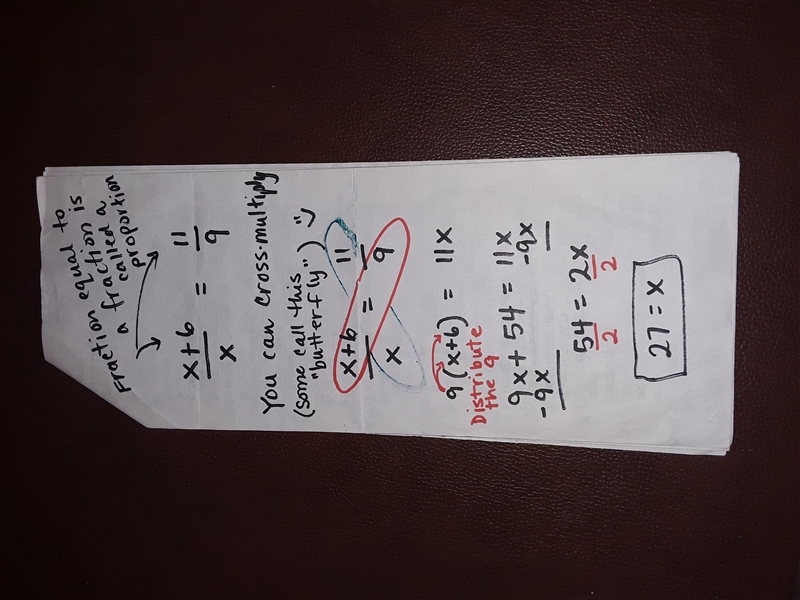 fraction equal to
a fraction is
called a
proportion
x+6/x = 11/9
You can cross-multiply
(some call this
"butterfly")
x+6/x = 11/9
9(x+6) = 11x
Distribute
the 9
9x + 54 = 11x
-9x -9x
54/2 = 2x/2
27 = x